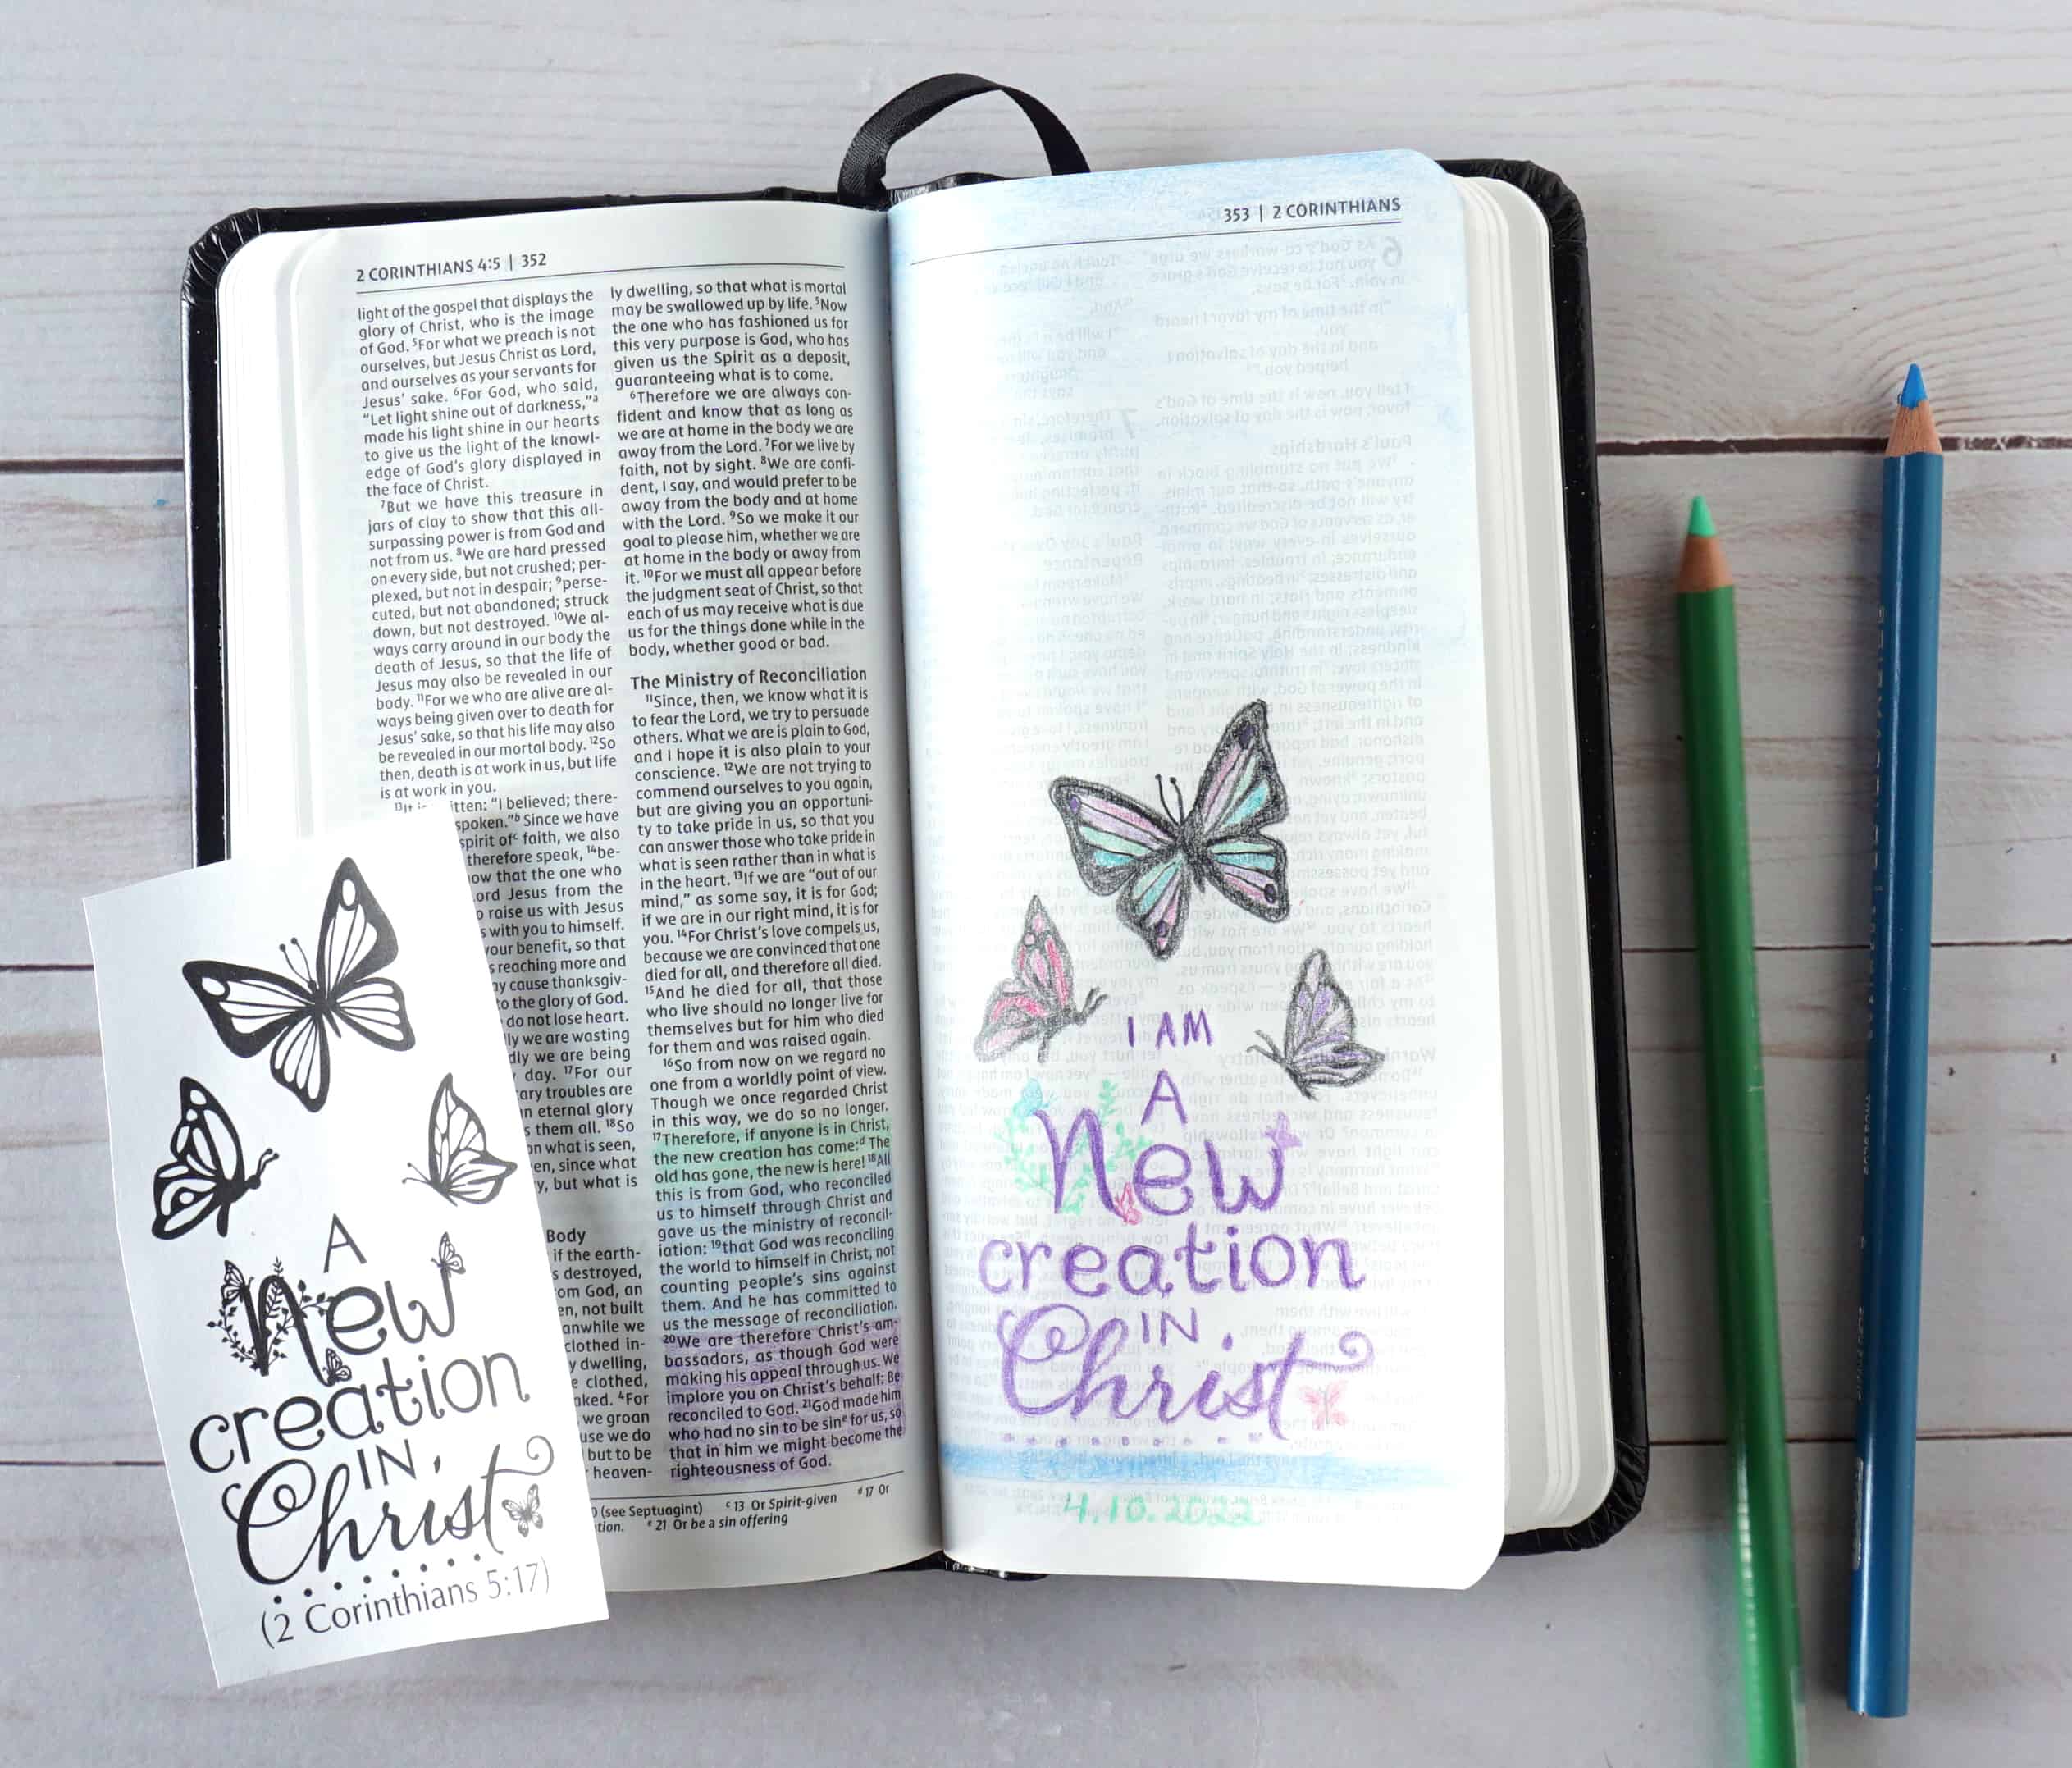 2 CORINTHIANS 4:5 | 352
light of the gospel that displays the
glory of Christ, who is the image
of God. ⁵For what we preach is not
ourselves, but Jesus Christ as Lord,
and ourselves as your servants for
Jesus' sake. ⁶For God, who said,
"Let light shine out of darkness,"ᵃ
made his light shine in our hearts
to give us the light of the knowl-
edge of God's glory displayed in
the face of Christ.
⁷But we have this treasure in
jars of clay to show that this all-
surpassing power is from God and
not from us. ⁸We are hard pressed
on every side, but not crushed; per-
plexed, but not in despair; ⁹perse-
cuted, but not abandoned; struck
down, but not destroyed. ¹⁰We al-
ways carry around in our body the
death of Jesus, so that the life of
Jesus may also be revealed in our
body. ¹¹For we who are alive are al-
ways being given over to death for
Jesus' sake, so that his life may also
be revealed in our mortal body. ¹²So
then, death is at work in us, but life
is at work in you.
¹³It itten: "I believed; there-
spoken."ᵇ Since we have
spirit ofᶜ faith, we also
therefore speak, ¹⁴be-
ow that the one who
ord Jesus from the
raise us with Jesus
with you to himself.
your benefit, so that
reaching more and
cause thanksgiv-
to the glory of God.
do not lose heart.
ly we are wasting
we are being
day. ¹⁷For our
ary troubles are
n eternal glory
them all. ¹⁸So
on what is seen,
en, since what
y, but what is
Body
if the earth-
destroyed,
om God, an
en, not built
anwhile we
clothed in-
dwelling,
clothed,
aked. ⁴For
we groan
use we do
but to be
heaven-
ly dwelling, so that what is mortal
may be swallowed up by life. ⁵Now
the one who has fashioned us for
this very purpose is God, who has
given us the Spirit as a deposit,
guaranteeing what is to come.
⁶Therefore we are always con-
fident and know that as long as
we are at home in the body we are
away from the Lord. ⁷For we live by
faith, not by sight. ⁸We are confi-
dent, I say, and would prefer to be
away from the body and at home
with the Lord. ⁹So we make it our
goal to please him, whether we are
at home in the body or away from
it. ¹⁰For we must all appear before
the judgment seat of Christ, so that
each of us may receive what is due
us for the things done while in the
body, whether good or bad.
The Ministry of Reconciliation
¹¹Since, then, we know what it is
to fear the Lord, we try to persuade
others. What we are is plain to God,
and I hope it is also plain to your
conscience. ¹²We are not trying to
commend ourselves to you again,
but are giving you an opportuni-
ty to take pride in us, so that you
can answer those who take pride in
what is seen rather than in what is
in the heart. ¹³If we are "out of our
mind," as some say, it is for God;
if we are in our right mind, it is for
you. ¹⁴For Christ's love compels us,
because we are convinced that one
died for all, and therefore all died.
¹⁵And he died for all, that those
who live should no longer live for
themselves but for him who died
for them and was raised again.
¹⁶So from now on we regard no
one from a worldly point of view.
Though we once regarded Christ
in this way, we do so no longer.
¹⁷Therefore, if anyone is in Christ,
the new creation has come:ᵈ The
old has gone, the new is here! ¹⁸All
this is from God, who reconciled
us to himself through Christ and
gave us the ministry of reconcil-
iation: ¹⁹that God was reconciling
the world to himself in Christ, not
counting people's sins against
them. And he has committed to
us the message of reconciliation.
²⁰We are therefore Christ's am-
bassadors, as though God were
making his appeal through us. We
implore you on Christ's behalf: Be
reconciled to God. ²¹God made him
who had no sin to be sinᵉ for us, so
that in him we might become the
righteousness of God.
(see Septuagint) ᶜ 13 Or Spirit-given ᵈ 17 Or
tion. ᵉ 21 Or be a sin offering
A
New
creation
IN
Christ
(2 Corinthians 5:17)
353 | 2 CORINTHIANS
I AM
A
New
creation
IN
Christ
4.10.2022